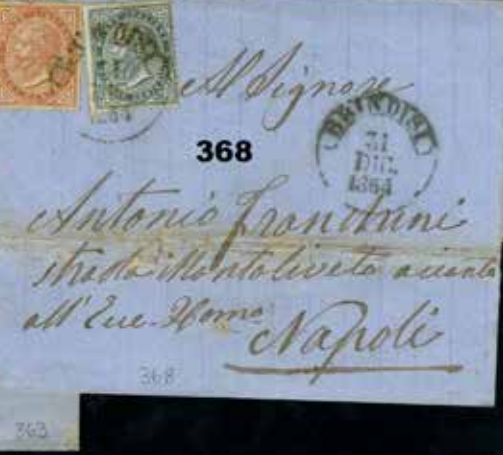 Al Signore
368
BRINDISI
31
DIC.
1864
Antonio
strada Montoliveto accanto
all' Ecce-Homo
Napoli
368
363